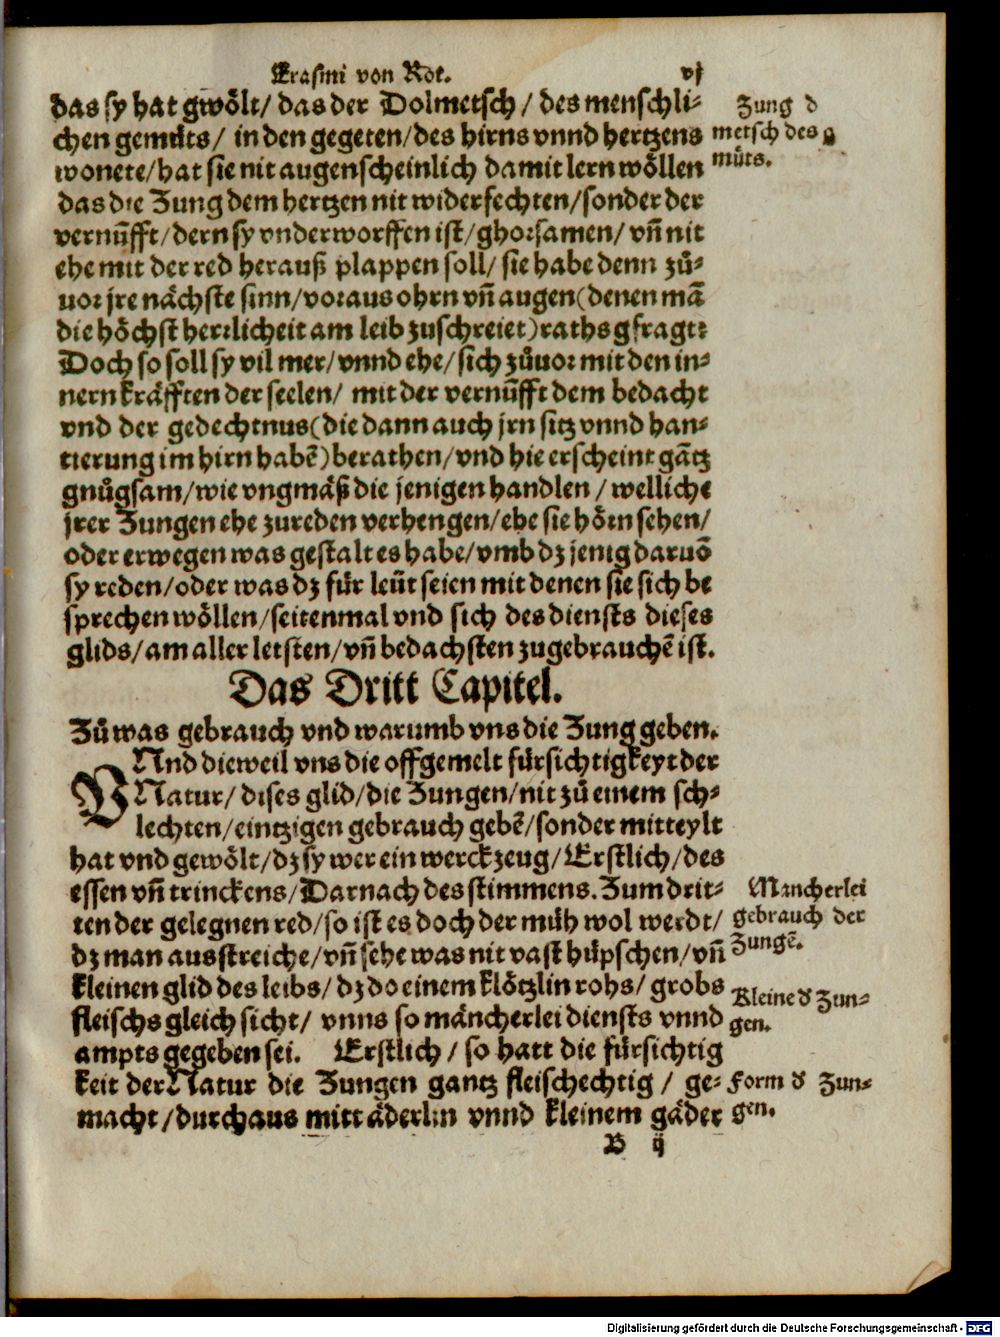 Erasmi von Rot. vj
das sy hat gwölt/ das der Dolmetsch/ des menschli⸗
chen gemüts/ in den gegeten/des hirns vnnd hertzens
wonete/hat sie nit augenscheinlich damit lern wöllen
das die Zung dem hertzen nit widerfechten/sonder der
vernũfft/dern sy vnderworffen ist/ghorsamen/ vñ nit
ehe mit der red herauß plappen soll/ sie habe denn zů⸗
uor jre nächste sinn/voraus ohrn vñ augen(denen mã
die höchst herrlicheit am leib zuschreiet)raths gfragt:
Doch so soll sy vil mer/vnnd ehe/sich zůuor mit den in⸗
nern kräfften der seelen/ mit der vernũfft dem bedacht
vnd der gedechtnus(die dann auch jrn sitz vnnd han⸗
tierung im hirn habẽ)berathen/vnd hie erscheint gãtz
gnůgsam/wie vngmäß die jenigen handlen/ welliche
jrer Zungen ehe zureden verhengen/ehe sie hörn sehen/
oder erwegen was gestalt es habe/vmb dz jenig daruõ
sy reden/oder was dz für leüt seien mit denen sie sich be
sprechen wöllen/seitenmal vnd sich des diensts dieses
glids/am aller letsten/vñ bedachsten zugebrauchẽ ist.
Zung d
metsch des g
müts.
Das Dritt Capitel.
Zů was gebrauch vnd warumb vns die Zung geben.
VNnd dieweil vns die offgemelt fürsichtigkeyt der
Natur/ dises glid/die Zungen/nit zů einem sch⸗
lechten/eintzigen gebrauch gebẽ/sonder mitteylt
hat vnd gewölt/dz sy wer ein werckzeug/Erstlich/des
essen vñ trinckens/Darnach des stimmens. Zum drit⸗
ten der gelegnen red/so ist es doch der müh wol werdt/
dz man ausstreiche/vñ sehe was nit vast hüpschen/vñ
kleinen glid des leibs/dz do einem klötzlin rohs/ grobs
fleischs gleich sicht/ vnns so mäncherlei diensts vnnd
ampts gegeben sei. Erstlich/ so hatt die fürsichtig
keit der Natur die Zungen gantz fleischechtig/ ge⸗
macht/durchaus mitt äderlin vnnd kleinem gäder
Mancherlei
gebrauch der
Zungẽ.
Kleine d Zun⸗
gen.
Form d Zun⸗
gen.
B ij
Digitalisierung gefördert durch die Deutsche Forschungsgemeinschaft - DFG